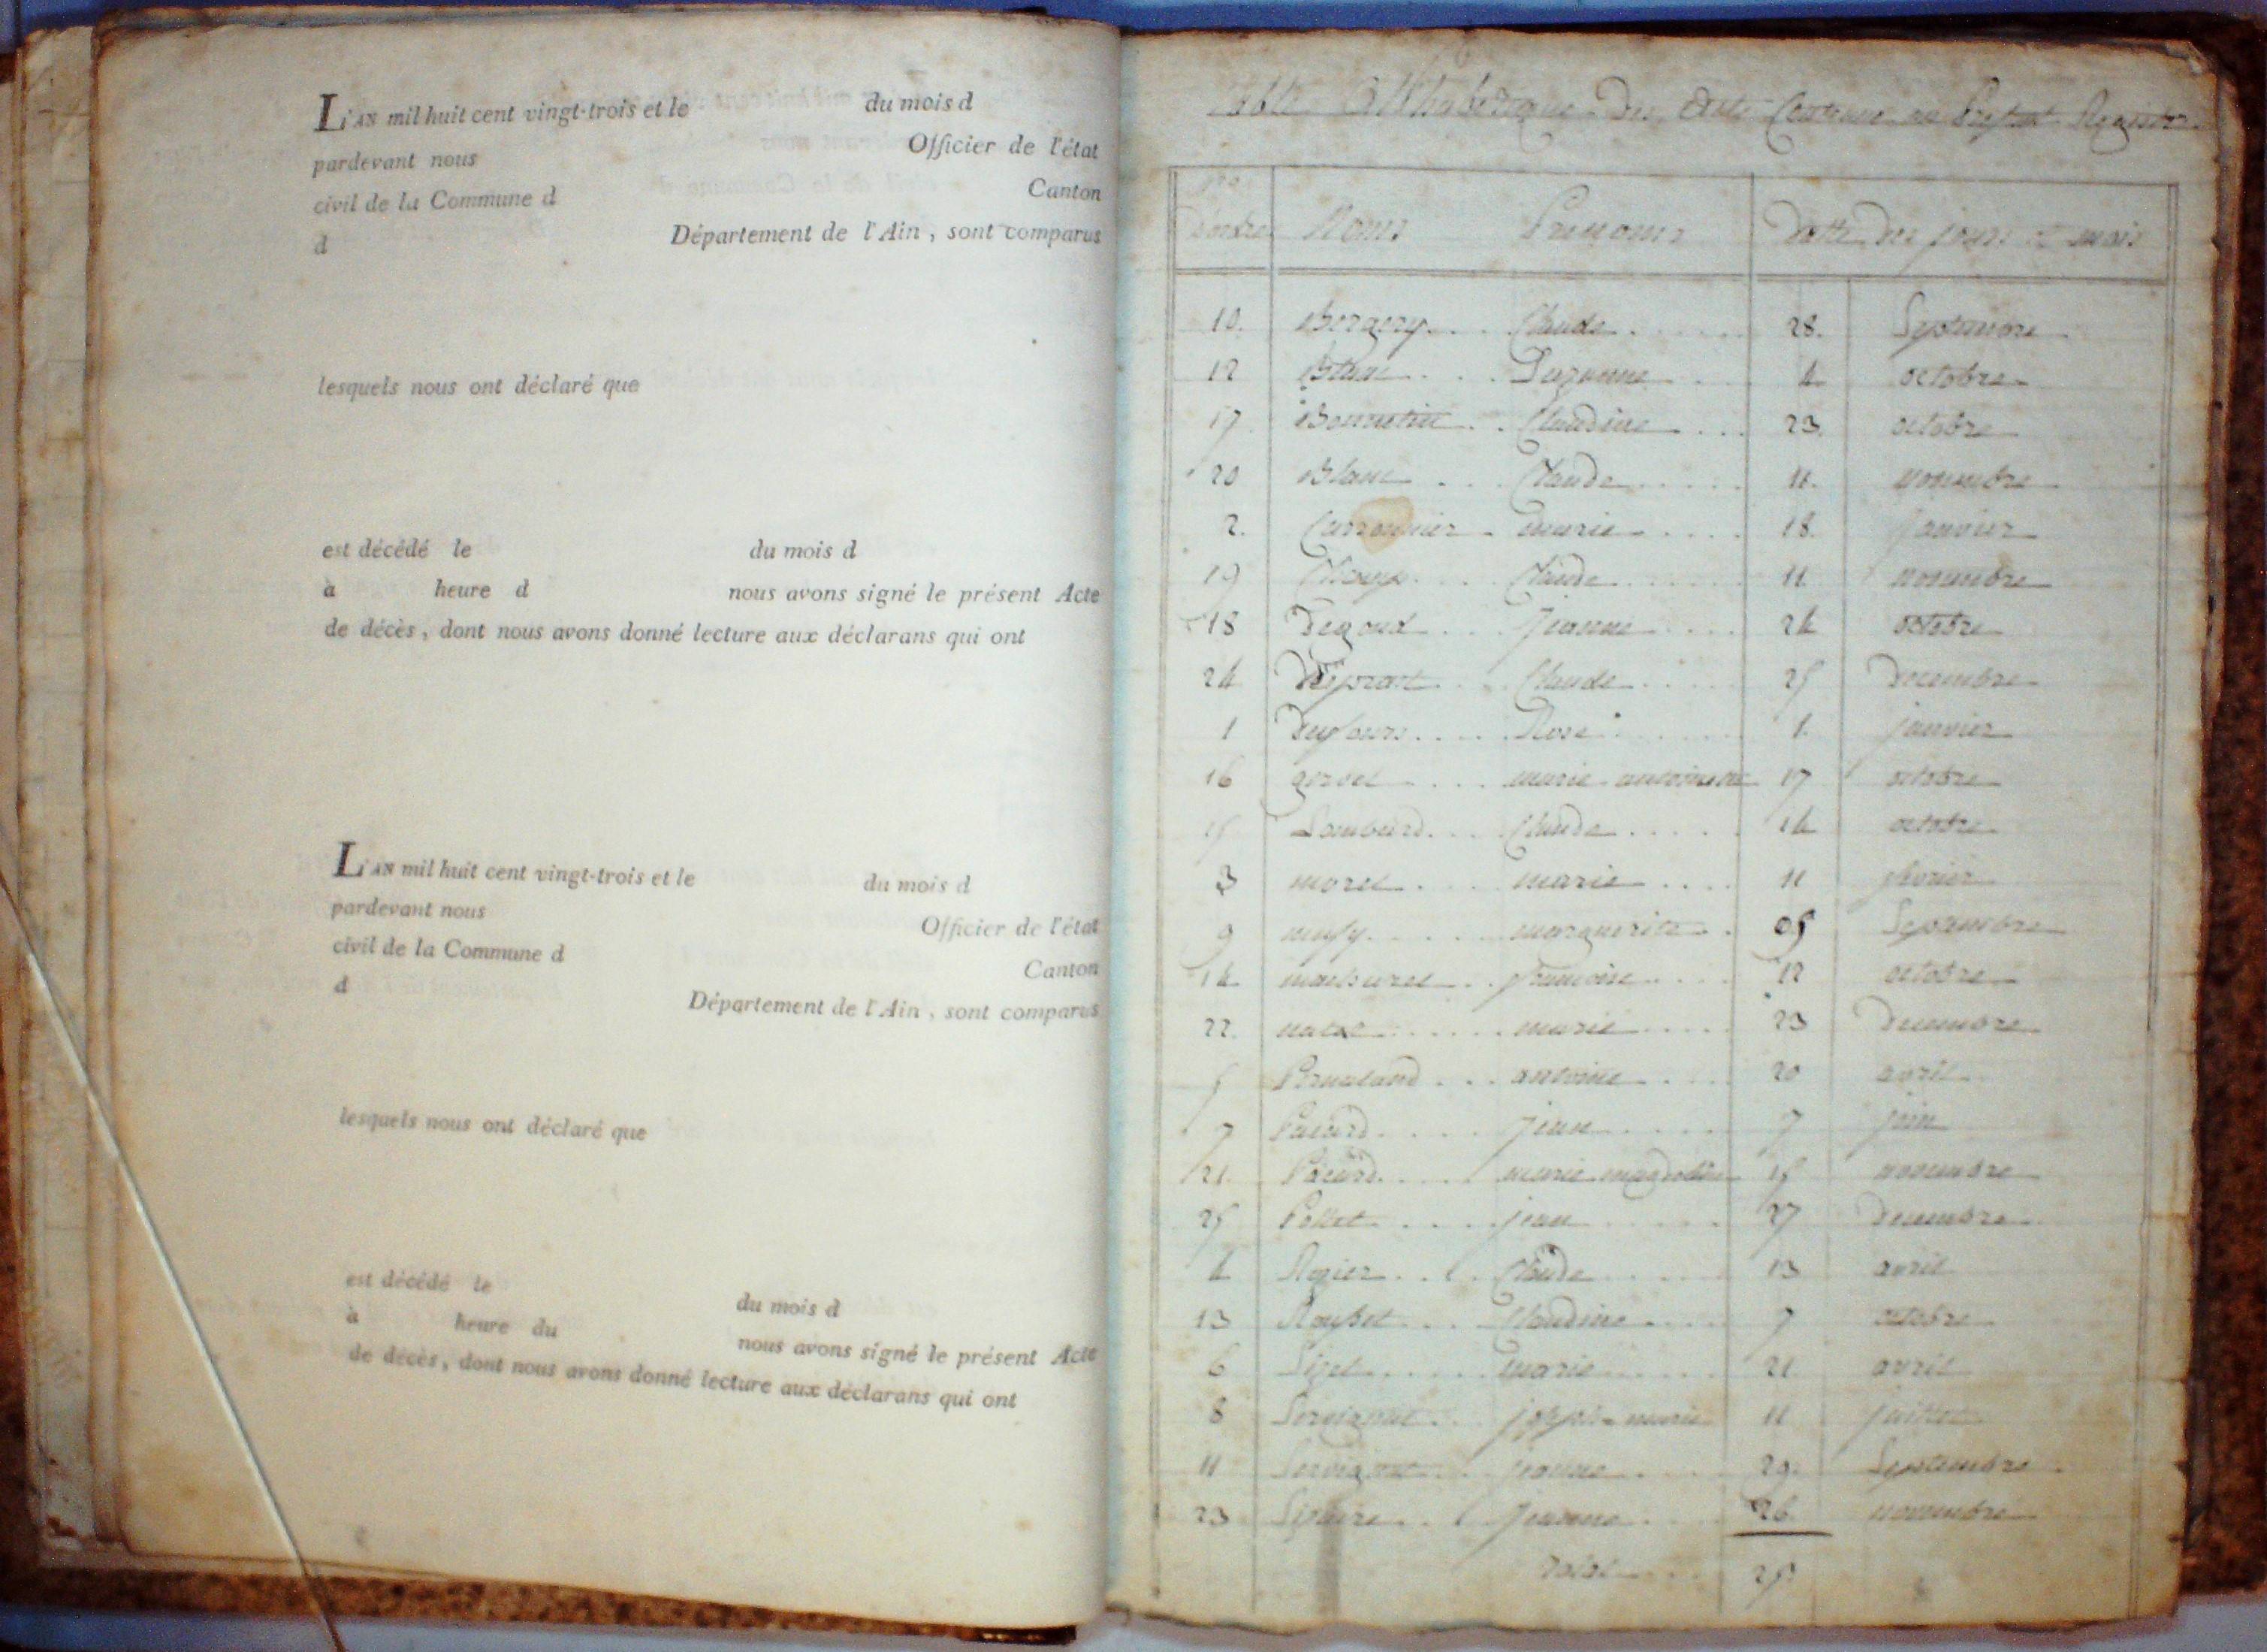 L'AN mil huit cent vingt-trois et le du mois d
pardevant nous Officier de l'état
civil de la Commune d Canton
d Département de l'Ain, sont comparus
lesquels nous ont déclaré que
est décédé le du mois d
à heure d nous avons signé le présent Acte
de décès, dont nous avons donné lecture aux déclarans qui ont
L'AN mil huit cent vingt-trois et le du mois d
pardevant nous Officier de l'état
civil de la Commune d Canton
d Département de l'Ain, sont comparus
lesquels nous ont déclaré que
est décédé le du mois d
à heure du nous avons signé le présent Acte
de décès, dont nous avons donné lecture aux déclarans qui ont
Table Alphabetique des Actes Contenus au Present Registre
Nos
D'ordre Noms Prenoms Datte des jours et mois
10. Claude 28. Septembre
12 Blanc Suzanne 4 octobre
17 Claudine 23. octobre
20 Blanc Claude 11. novembre
2. Carronnier marie 18. janvier
19 Claude 11 novembre
18 Degoud Jeanne 24 octobre
24 Claude 25 Decembre
1 Dufour Rose 1. janvier
16 marie antoinette 17 octobre
15 Lombard Claude 14 octobre
3 morel marie 11 fevrier
9 marguerite 05 Septembre
14 francoise 12 octobre
22. marie 23 Decembre
5 antoine 20 avril
7 Pacard 7 juin
21. Pacard marie magdelaine 15 novembre
25 Pollet jean 27 Decembre
4 Claude 13 avril
13 Claudine 7 octobre
6 marie 21 avril
8 Servignat joseph marie 11 juillet
11 Servignat jeanne 29. Septembre
23 Jeanne 26 novembre
total 25